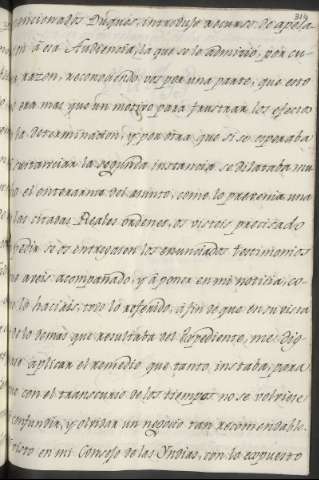 319
cionados Duques, introdujo recurso de apela-
on à esa Audiencia, la que se lo admitió, por cu-
razon, reconociendo vos por una parte, que esto
era mas que un motivo para frustrar los efectos
la determinacion, y por otra, que si se esperaba
sustanciar la segunda instancia se dilataba mu-
o el enterarme del asunto, como lo prevenia una
las citadas Reales ordenes, os visteis precisado
pedir se os entregasen los enunciados testimonios
aveis acompañado, y à poner en mi noticia, co-
lo haciais, todo lo referido, à fin de que en su vista
de lo demas que resultaba del Expediente, me dig-
aplicar el remedio que tanto instaba, para
e con el transcurso de los tiempos no se volviese
confundir, y olvidar un negocio tan recomendable.
visto en mi Consejo de las Yndias, con lo expuesto